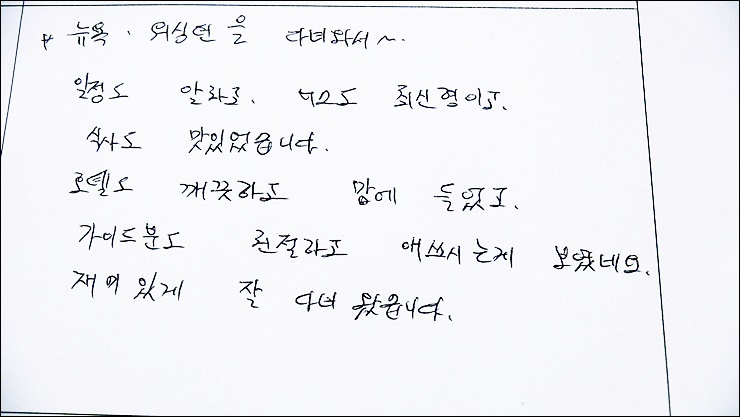 * 뉴욕. 워싱턴을 다녀와서~.
일정도 알차고. 버스도 최신형이고.
식사도 맛있었습니다.
호텔도 깨끗하고 맘에 들었고.
가이드분도 친절하고 애쓰시는게 보였네요.
재미있게 잘 다녀왔습니다.